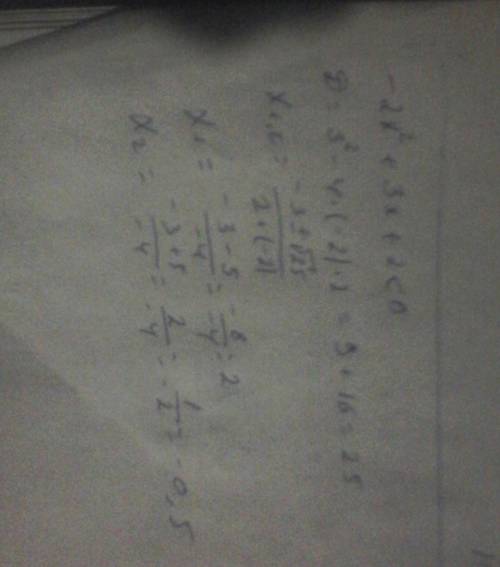 -2x² + 3x + 2 < 0
D = 3² - 4·(-2)·2 = 9 + 16 = 25
x₁,₂ = (-3 ± √25)/(2·(-2))
x₁ = (-3-5)/(-4) = (-8)/(-4) = 2
x₂ = (-3+5)/(-4) = 2/(-4) = -1/2 = -0,5